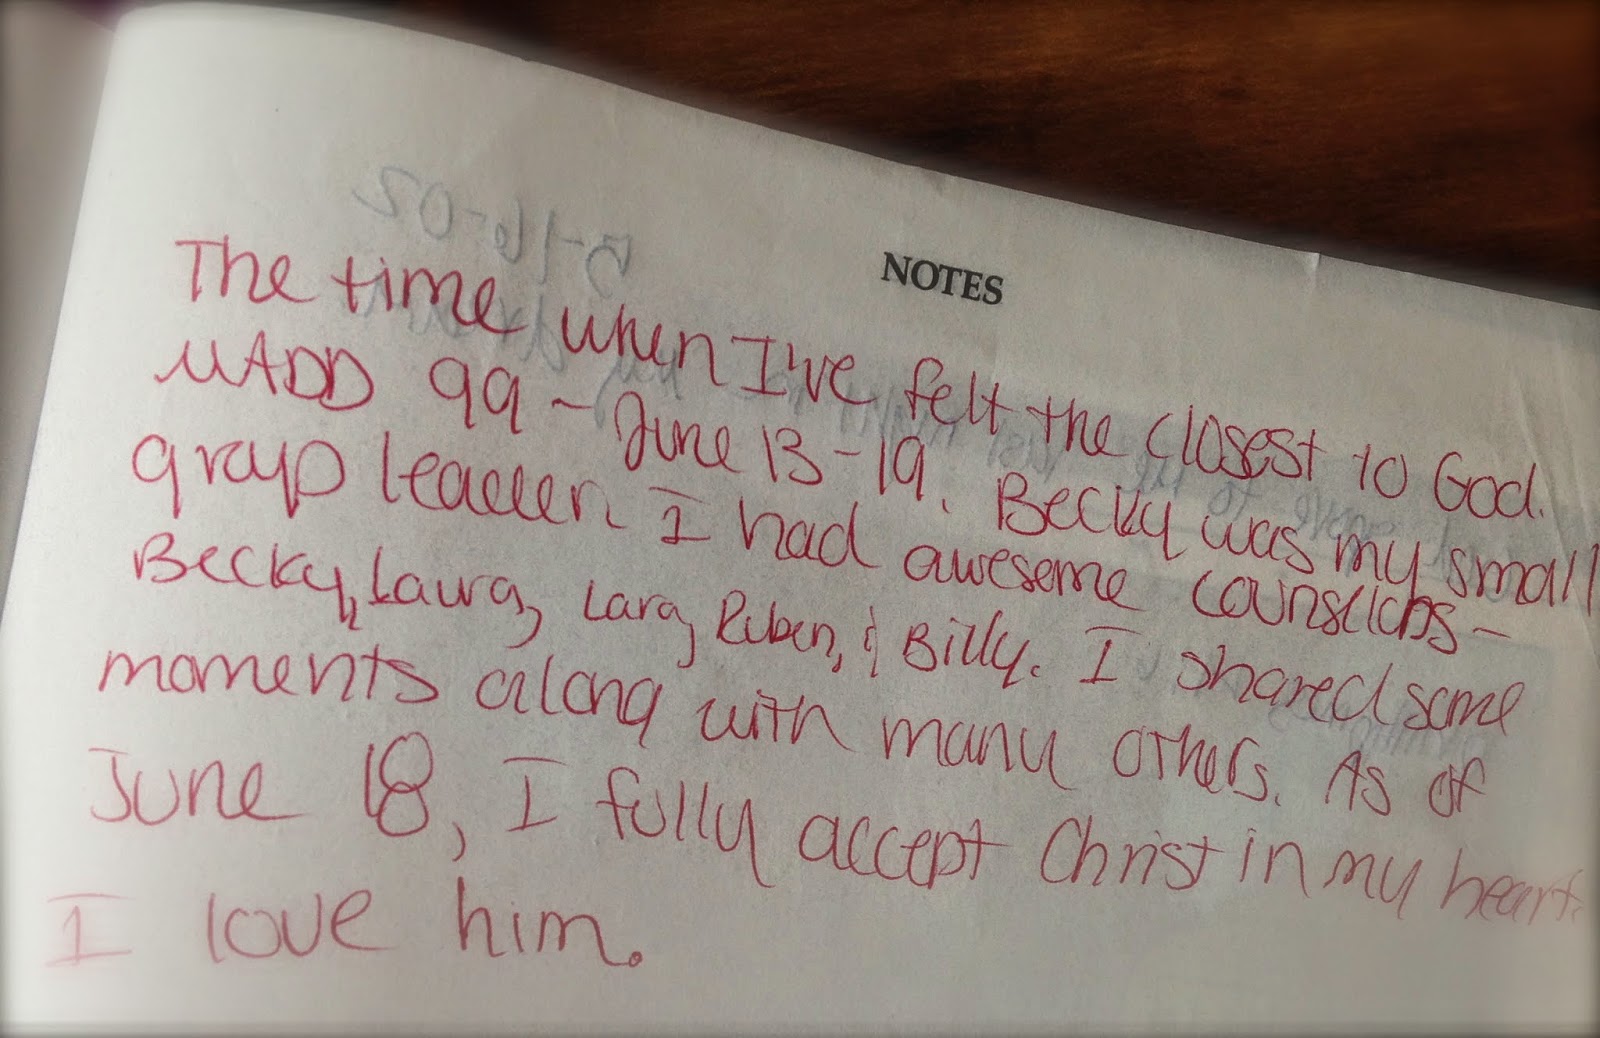 5-16-02
NOTES
The time when I've felt the closest to God.
MADD 99 - June 13-19. Becky was my small
group leader. I had awesome counselors -
Becky, Laura, Lara, Ruben, & Billy. I shared some
moments along with many others. As of
June 18, I fully accept Christ in my heart.
I love him.